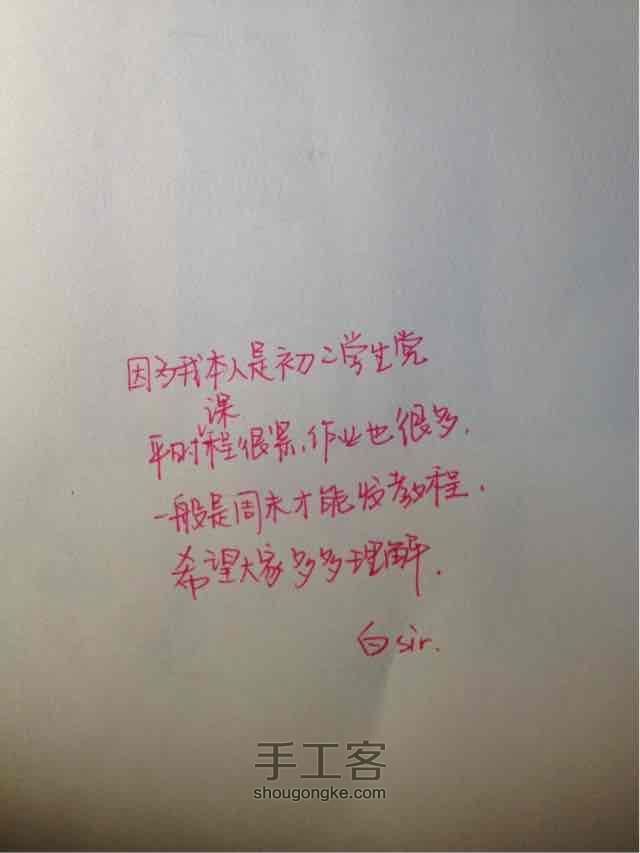 因为我本人是初二学生党
平时课程很紧,作业也很多,
一般是周末才能发教程,
希望大家多多理解.
白sir.
手工客
shougongke.com